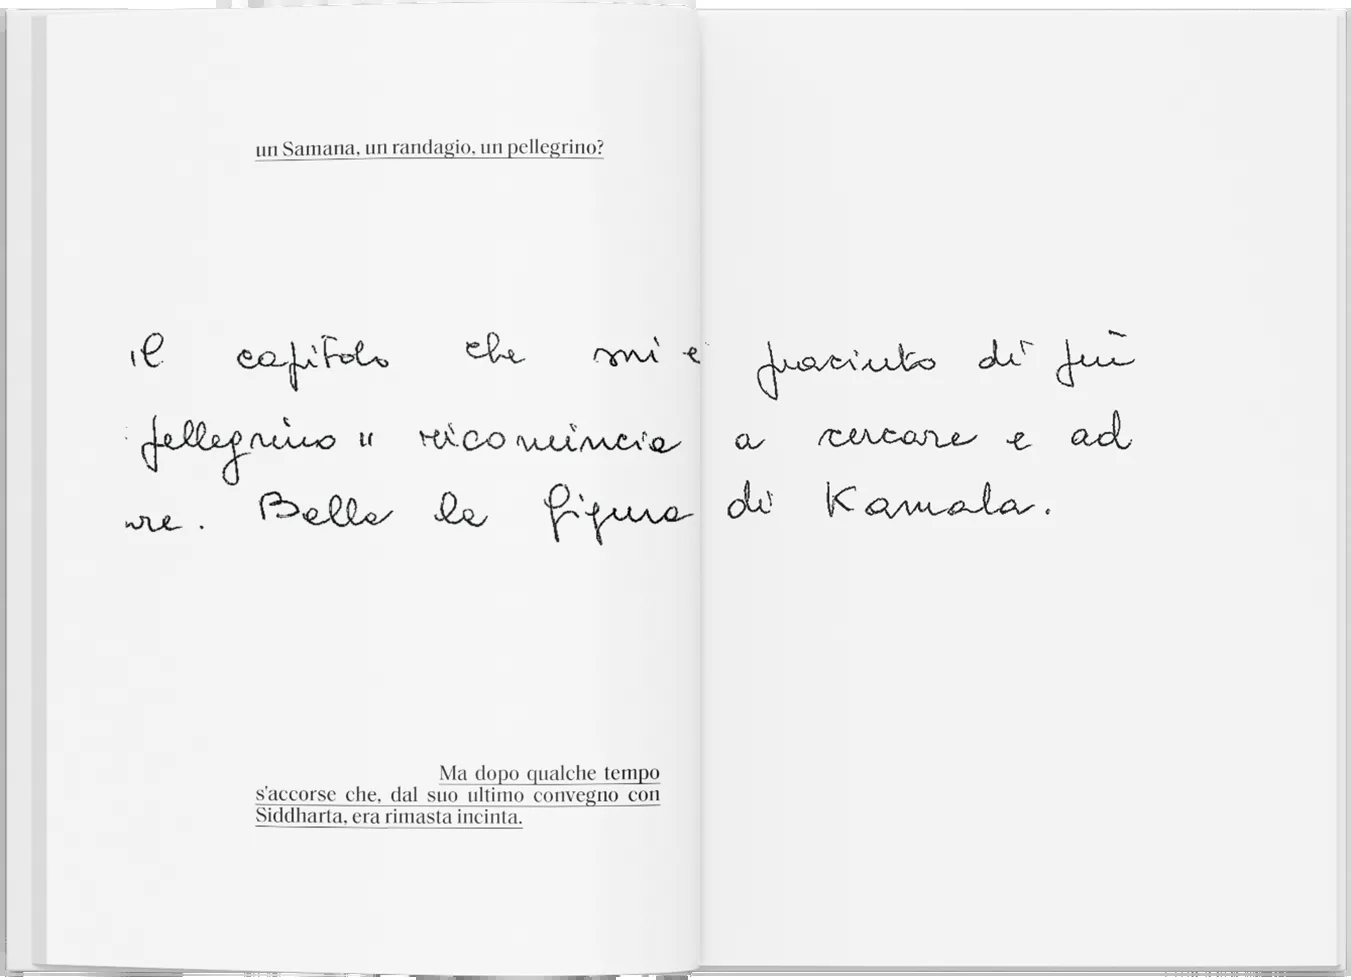 un Samana, un randagio, un pellegrino?
il capitolo che mi è piaciuto di più
pellegrino" ricomincia a cercare e ad
re. Bella la figura di Kamala.
Ma dopo qualche tempo
s'accorse che, dal suo ultimo convegno con
Siddharta, era rimasta incinta.